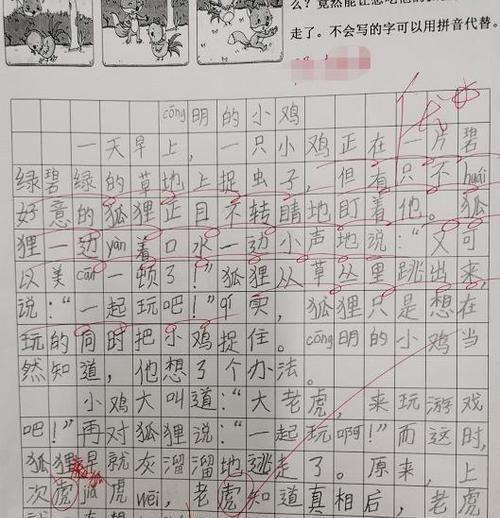 么？竟然能让想吃他的狐
走了。不会写的字可以用拼音代替。
cōng明的小鸡
一天早上，一只小鸡正在一片碧
绿碧绿的草地上捉虫子，但有只不huái
好意的狐狸正目不转睛地盯着他。狐
狸一边yán着口水一动小声地说：“又可
以美cān一顿了！”狐狸从草丛里跳出来，
说：“一起玩吧！”qí实，狐狸只是想在
玩的同时把小鸡捉住。cōng明的小鸡当
然知道，他想了个办法。
小鸡大叫道：“大老虎，来玩游戏
吧！”再对狐狸说：“一起玩啊！”而这时，
狐狸早就灰溜溜地逃走了。原来，上
次虎jiǎ虎wēi，老虎知道真相后，老虎